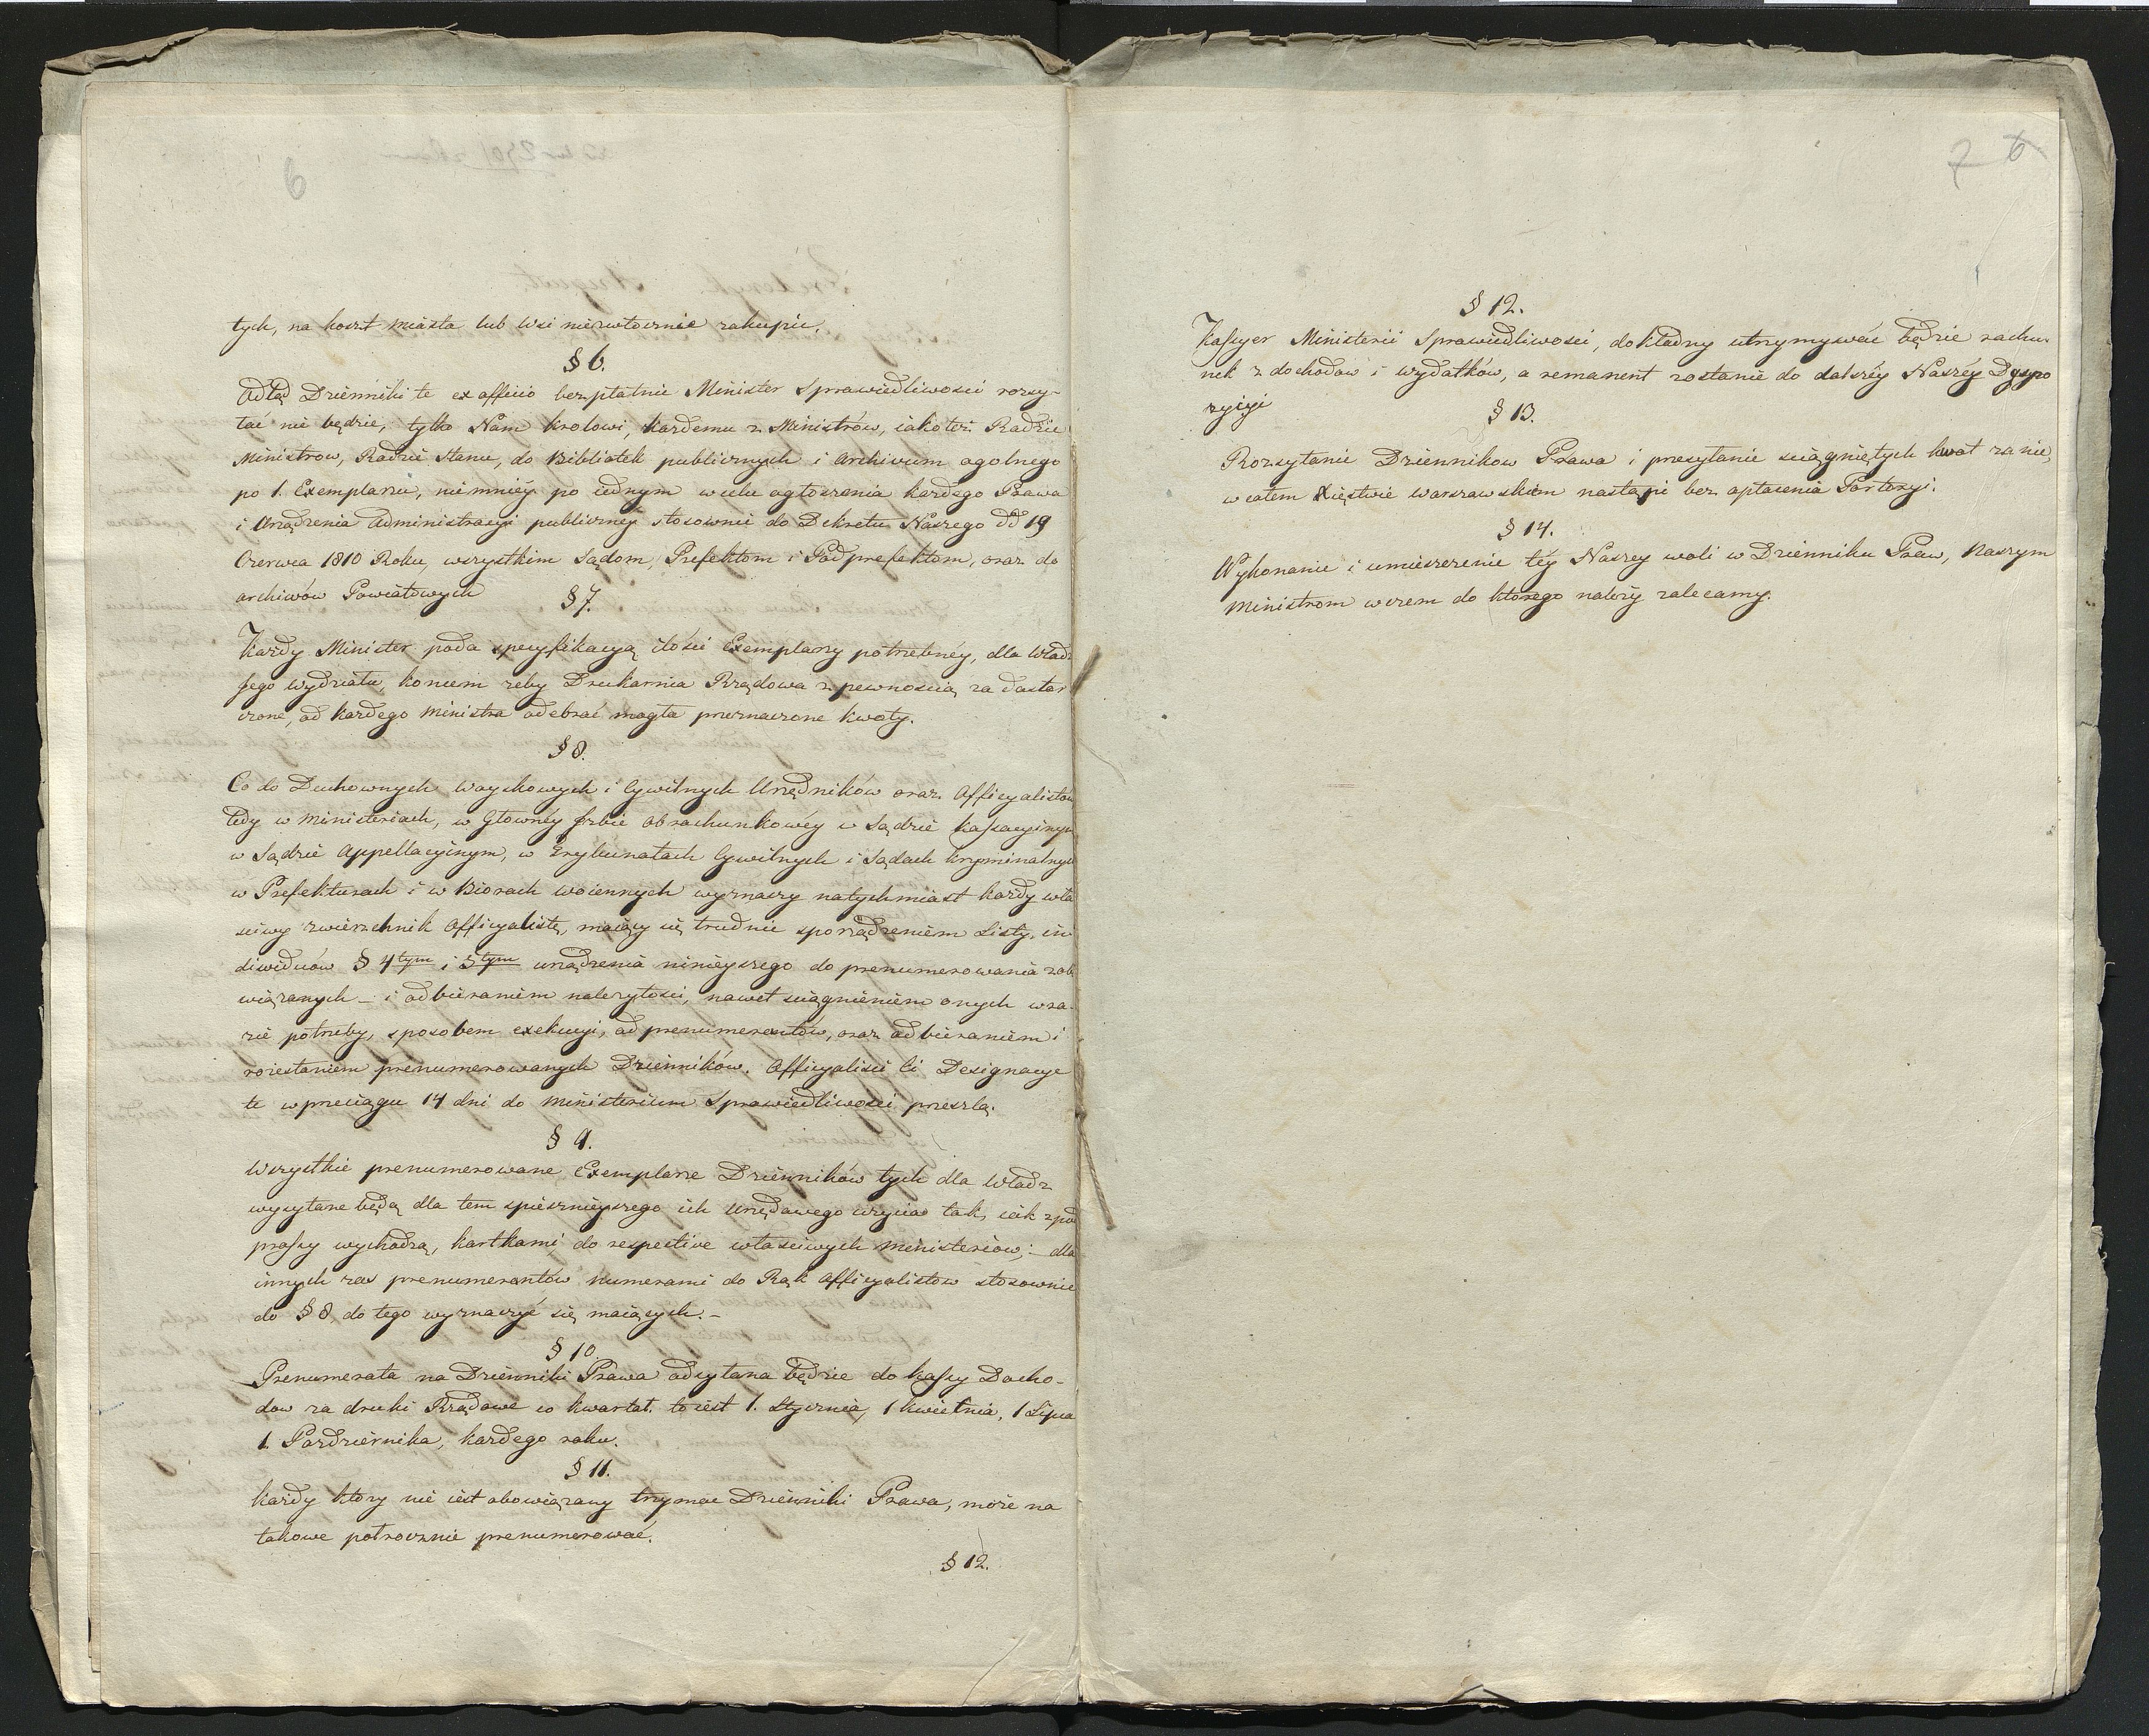 6
tych, na koszt miasta lub wsi niezwłocznie zakupić.
§ 6.
Odtąd Dzienniki te ex officio bezpłatnie Minister Sprawiedliwości rozsy-
łać nie będzie, tylko Nam Krolowi, każdemu z Ministrów, iakoteż Radzie
Ministrow, Radzie Stanu, do Bibliotek publicznych i Archivum ogolnego
po 1. Exemplarzu, niemniéy po iednym w celu ogłoszenia każdego Prawa
i Urządzenia Administracyi publicznéy stosownie do Dekretu Naszego dd 19
Czerwca 1810 Roku, wszystkim Sądom, Prefektom i Podprefektom, oraz do
archiwów Powiatowych
§ 7.
Każdy Minister poda specyfikacyą ilości Exemplarzy potrzebnéy, dla Władz
jego wydziału, koncem żeby Drukarnia Rządowa z pewnością za dostar
czone, od każdego Ministra odebrać mogła przeznaczone kwoty.
§ 8.
Co do Duchownych Woyskowych i Cywilnych Urzędników oraz Officyalistów
tedy w Ministeriach, w Głownéy Izbie Obrachunkowéy w Sądzie Kassacyinym
w Sądzie Appellacyinym, w Trybunałach Cywilnych i Sądach Kryminalnych
w Prefekturach i w Biorach woiennych wyznaczy natychmiast każdy wła
sciwy zwierzchnik Officyalistę, maiący się trudnić sporządzeniem Listy, in
dividuów § 4tym i 5tym urządzenia ninieyszego do prenumerowania zobo
wiązanych – i odbieraniem należytości, nawet sciągnieniem onych w ra-
zie potrzeby, sposobem exekucyi, od prenumerantów, oraz odbieraniem i
rozesłaniem prenumerowanych Dzienników. Officyalisci Ci Designacye
te w przeciągu 14 dni do Ministerium Sprawiedliwości przeszlą.
§ 9.
Wszystkie prenumerowane Exemplarze Dzienników tych dla Władz
wysyłane będą dla tem spieszniéyszego ich urzędowego użycia tak, iak zpod
prassy wychodzą, kartkami do respective właściwych Ministeriów; – dla
innych zas prenumerantów numerami do Rąk Officyalistow stosownie
do § 8, do tego wyznaczyć się maiących. –
§ 10.
Prenumerata na Dzienniki Prawa odsyłana będzie do Kassy Docho-
dow za druki Rządowe co kwartał. to iest 1. Stycznia, 1 Kwietnia, 1 Lipca
1. Pazdziernika, każdego roku.
§ 11.
Każdy ktory nie iest obowiązany trzymac Dzienniki Prawa, może na
takowe połrocznie prenumerować.
§ 12.
7 6
§ 12.
Kassyer Ministerii Sprawiedliwości, dokładny utrzymywać będzie rachu-
nek z dochodow i wydatków, a remanent zostanie do dalszéy Naszéy Dyspo
zycyi
§ 13.
Rozsyłanie Dziennikow Prawa i przesyłanie sciągniętych kwot za nie,
w całem Xięstwie Warszawskim nastąpi bez opłacenia Portoryi.
§ 14.
Wykonanie i umieszczenie téy Naszey woli w Dzienniku Praw, Naszym
Ministrom w czem do ktorego należy zalecamy.